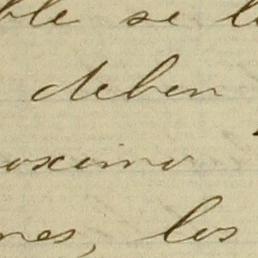 ble se l
deben
oximo
nes, los